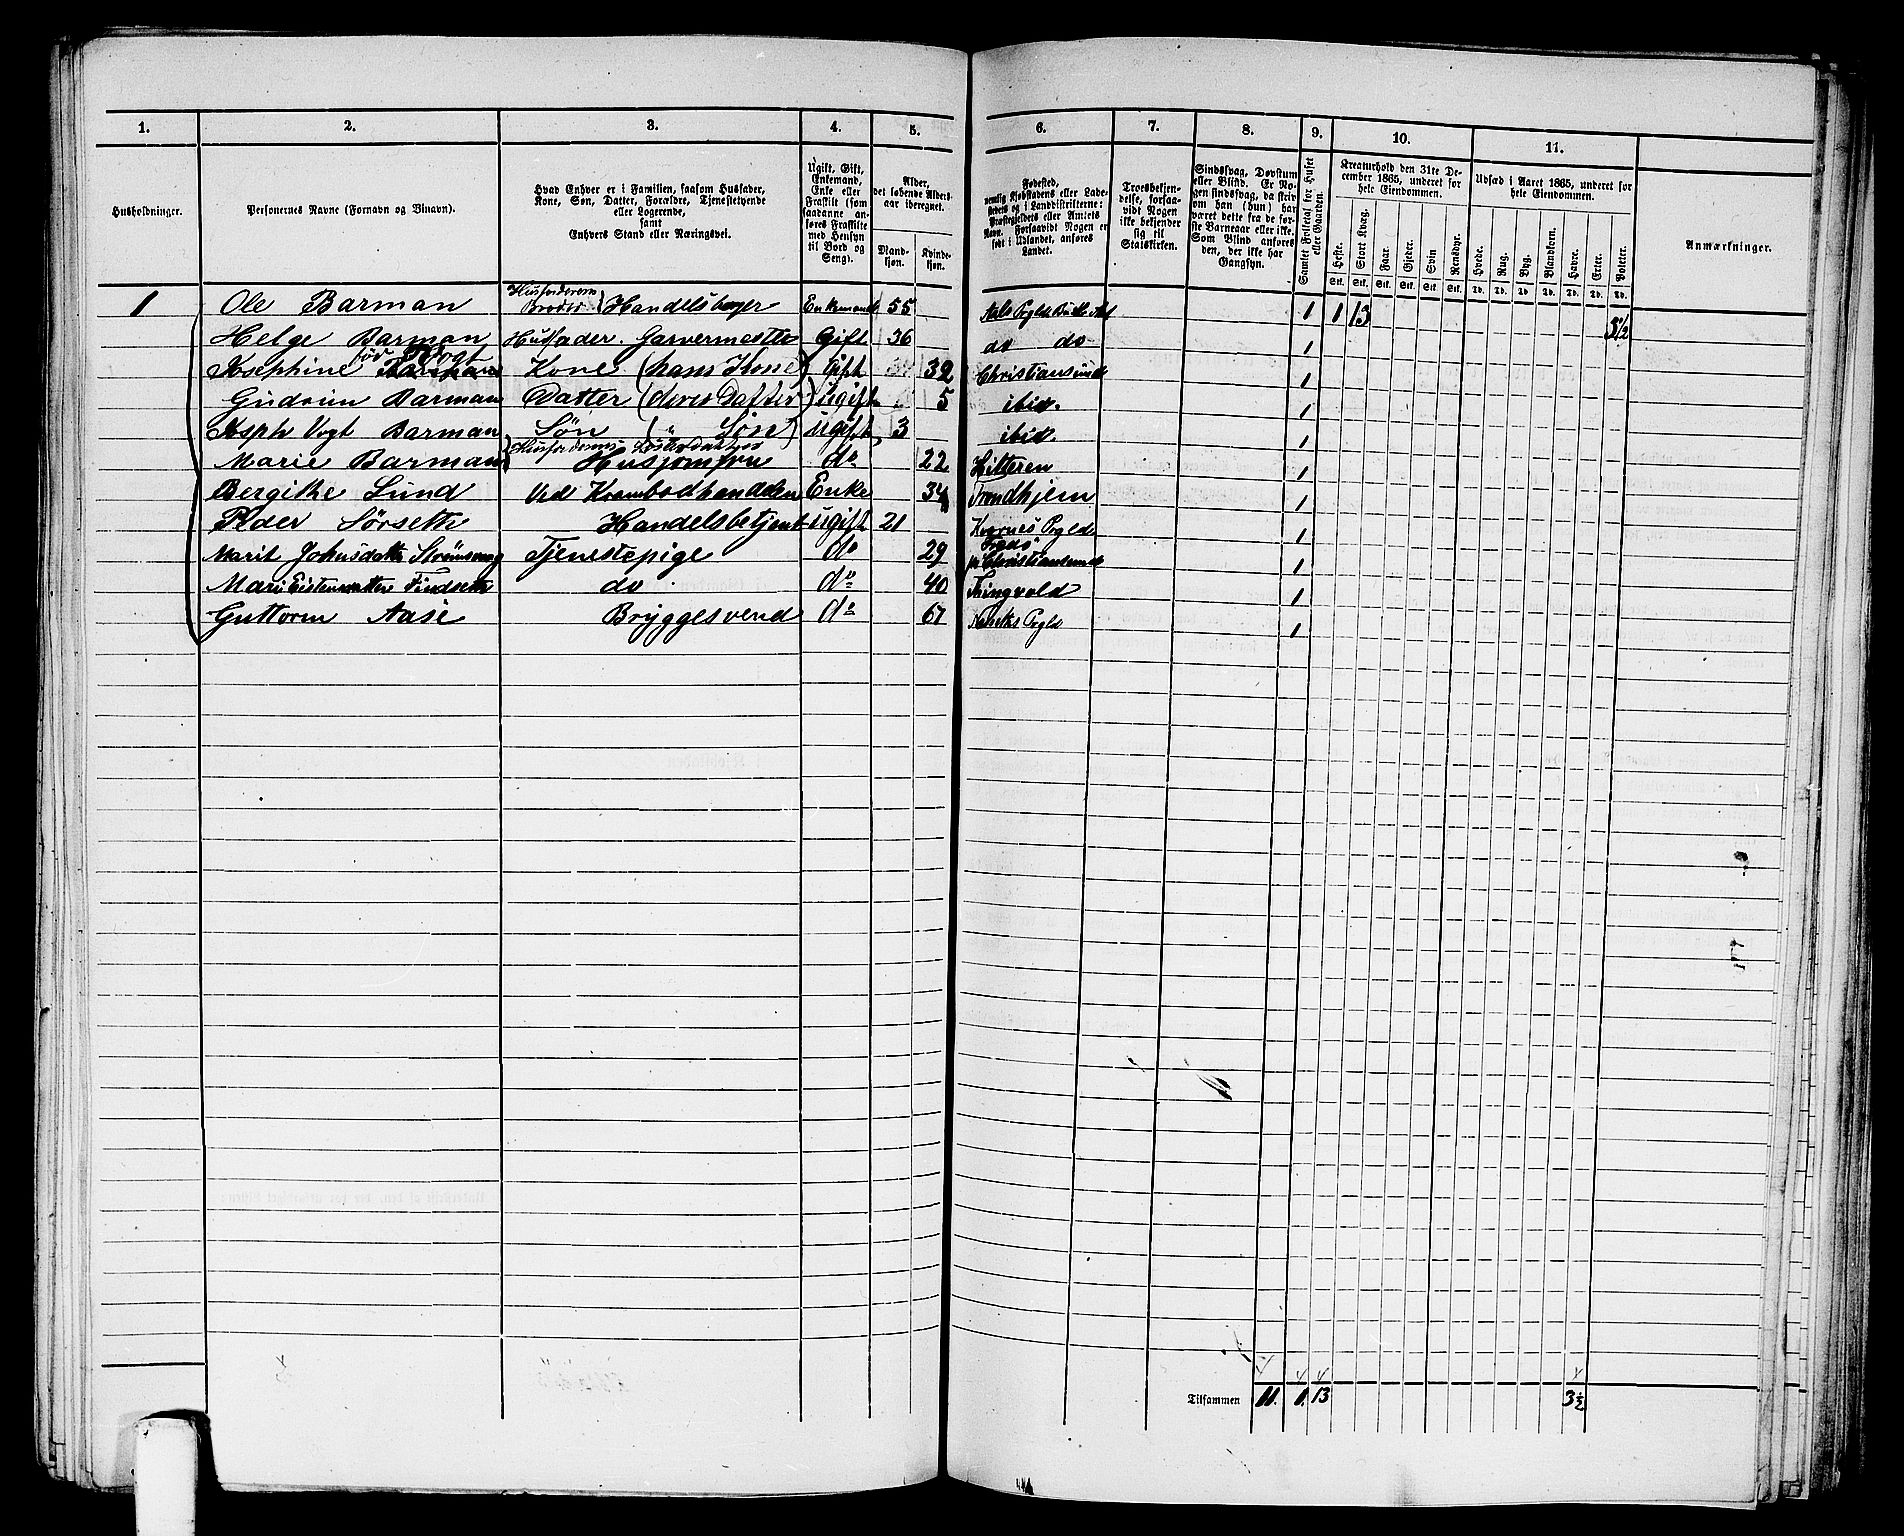 1. 2. 3. 4. 5. 6. 7. 8. 9. 10. 11.
Husholdninger.
Personernes Navne (Fornavn og Vinavn).
Hvad Enhver er i Familien, saasom Husfader,
Kone, Søn, Datter, Forældre, Tjenestetyende
eller Logerende,
samt
Enhvers Stand eller Næringsvei.
Ugift, Gift,
Enkemand,
Enke eller
Fraskilt (som
saadanne an-
føres Fraskilte
med Hensyn
til Bord og
Seng).
Alder,
det løbende Alders-
aar iberegnet.
Mand-
kjøn.
Kvinde-
kjøn.
Fødested,
nemlig Kjøbstadens eller Lade-
stedets og i Landdistrikterne:
Præstegjeldets eller Amtets
Navn. Forsaavidt Nogen er
født i Udlandet, anføres
Landet.
Troesbekjen-
delse, forsaa-
vidt Nogen
ikke bekjender
sig til
Statskirken.
Sindssvag, Døvstum
eller Blind. Er No-
gen sindssvag, da skriv
om han (hun) har
været dette fra de før-
ste Barneaar eller ikke.
Som Blind anføres
den, der ikke har
Gangsyn.
Samlet Folketal for Huset
eller Gaarden.
Kreaturhold den 31te De-
cember 1865, underet for
hele Eiendommen.
Heste. Stort Kvæg. Faar. Gjeder. Svin Rensdyr.
Stk. Stk. Stk. Stk. Stk. Stk.
Udsæd i Aaret 1865, underet for
hele Eiendommen.
Hvede. Rug. Byg. Blandkorn. Havre. Erter. Poteter.
Td. Td. Td. Td. Td. Td. Td.
Anmærkninger.
1 Ole Barman Husfaderens Broder Handelsborger Enkemand 55 Aals Prgld 1 1 13
Helge Barman Husfader. Garvermester Gift 36 do do 1 3½
Josephine fød Vogt Kone (hans Kone) Gift 32 Christiansund 1
Gudrun Barman Datter (deres Datter) ugift 5 ibid. 1
Joseph Vogt Barman Søn (" Søn) ugift 3 ibid. 1
Marie Barman Husfaderens Husjomfru do 22 Hitteren 1
Bergithe Lund Ved Krambodhandelen Enke 34 Trondhjem 1
Peder Sørseth Handelsbetjent ugift 21 Kvernes Prgld 1
Marit Tjenestepige do 29 Christiansund 1
Mari do do 40 Thingvold 1
Guttorm Aase Bryggesvend do 67 Prgld 1
Tilsammen 11. 1. 13 3½